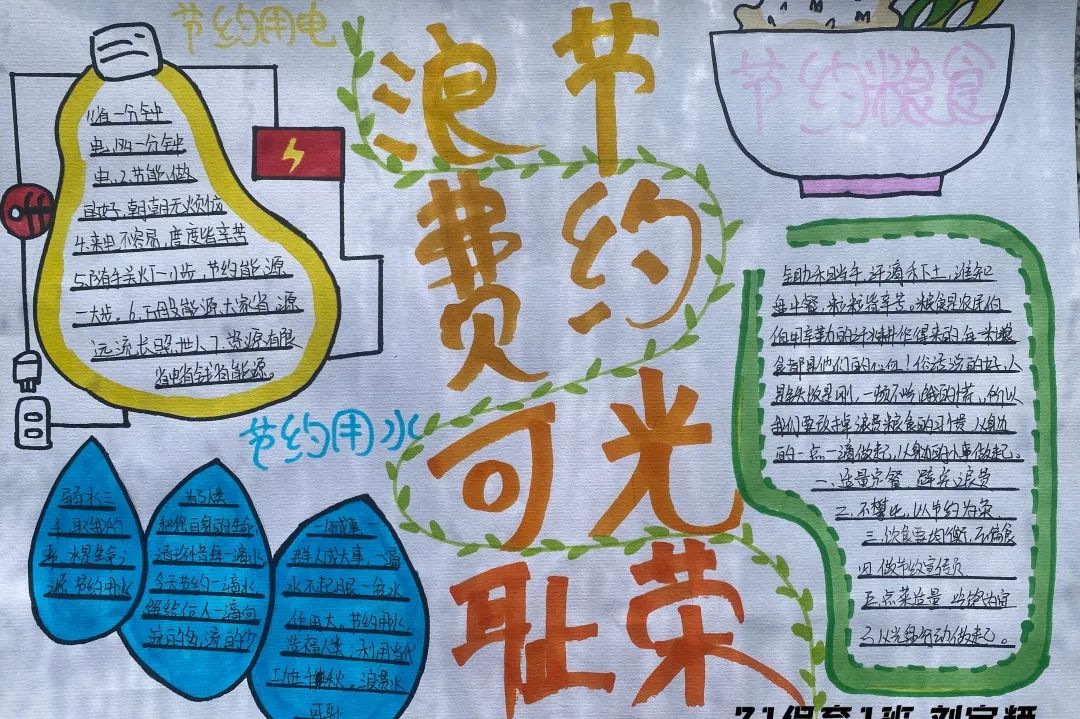 节约用电
省一分钟
电，
一分钟
电，2.节能，做
的好，朝朝无烦恼
4.来电不容易，度度皆辛苦
5.随手关灯一小步，节约能源
一大步。6.开段能源大家省，源
远流长照世人7.资源有限
省电省钱省能源。
节约
光荣
浪费
可耻
节约粮食
锄禾日当午，汗滴禾下土，谁知
盘中餐，粒粒皆辛苦。粮食是农民伯
伯用辛勤的汗水耕作得来的，每一粒粮
食都是他们的心血！俗话说的好，人
是铁饭是刚，一顿不吃饿的慌，所以
我们要改掉浪费粮食的习惯，从身边
的一点一滴做起，从身边的小事做起。
一、适量定餐 避免浪费
二、不攀比，以节约为荣
三、饮食要均衡，不偏食
四、做节约宣传员
五、点菜适量
以光盘行动做起。
节约用水
弱水三
取我的
水是生命之
源 节约用水
为了人类
和您自身的生命
请珍惜每一滴水
今天节约一滴水
留给后人一滴血
流的少
一人成事
群人成大事，一滴
水不起眼一盆水
作用大。节约用水
造福人类；利用当代
功在千秋。浪费水
可耻
21保育1班 刘